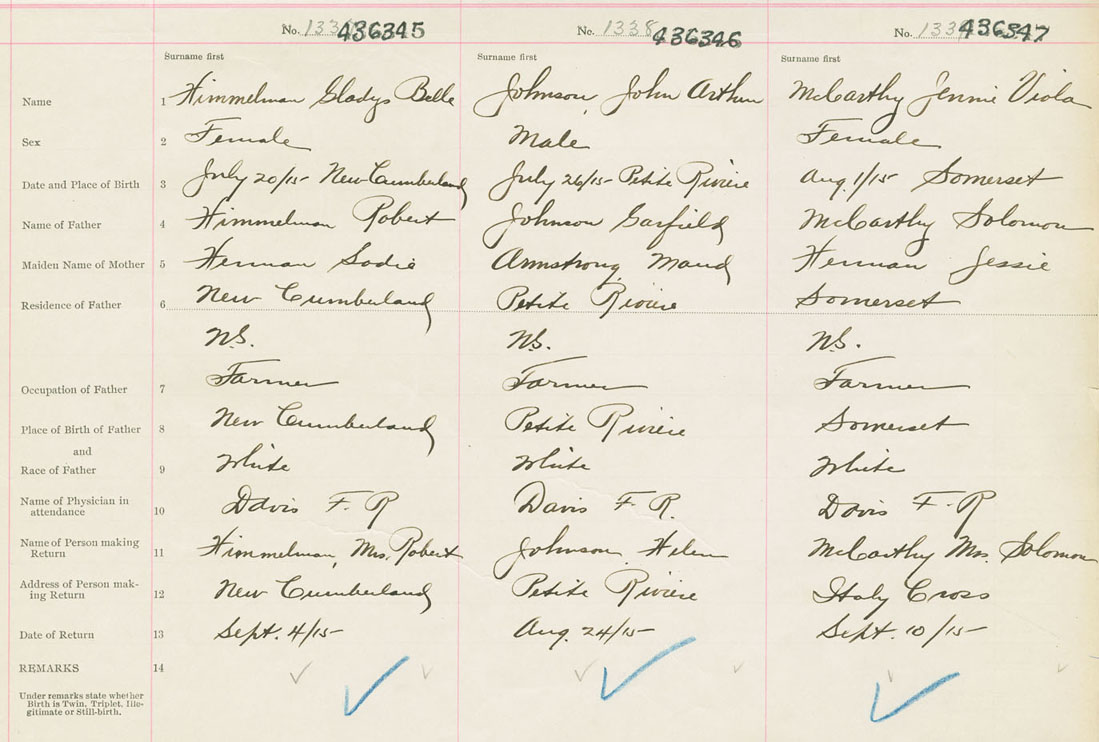 No. 1337 436345 No. 1338 436346 No. 1339 436347
Surname first Surname first Surname first
Name 1 Himmelman Gladys Belle Johnson, John Arthur McCarthy Jennie Viola
Sex 2 Female Male Female
Date and Place of Birth 3 July 20/15- New Cumberland July 26/15- Petite Riviere Aug. 1/15 Somerset
Name of Father 4 Himmelman Robert Johnson Garfield McCarthy Solomon
Maiden Name of Mother 5 Herman Sadie Armstrong Maud Herman Jessie
Residence of Father 6 New Cumberland Petite Riviere Somerset
N.S. N.S. N.S.
Occupation of Father 7 Farmer Farmer Farmer
Place of Birth of Father 8 New Cumberland Petite Riviere Somerset
and
Race of Father 9 White White White
Name of Physician in
attendance 10 Davis F. R Davis F. R. Davis F. R
Name of Person making
Return 11 Himmelman, Mrs. Robert Johnson Helen McCarthy Mrs. Solomon
Address of Person mak-
ing Return 12 New Cumberland Petite Riviere Italy Cross
Date of Return 13 Sept. 4/15- Aug. 24/15- Sept. 10/15-
REMARKS 14
Under remarks state whether
Birth is Twin, Triplet, Ille-
gitimate or Still-birth.